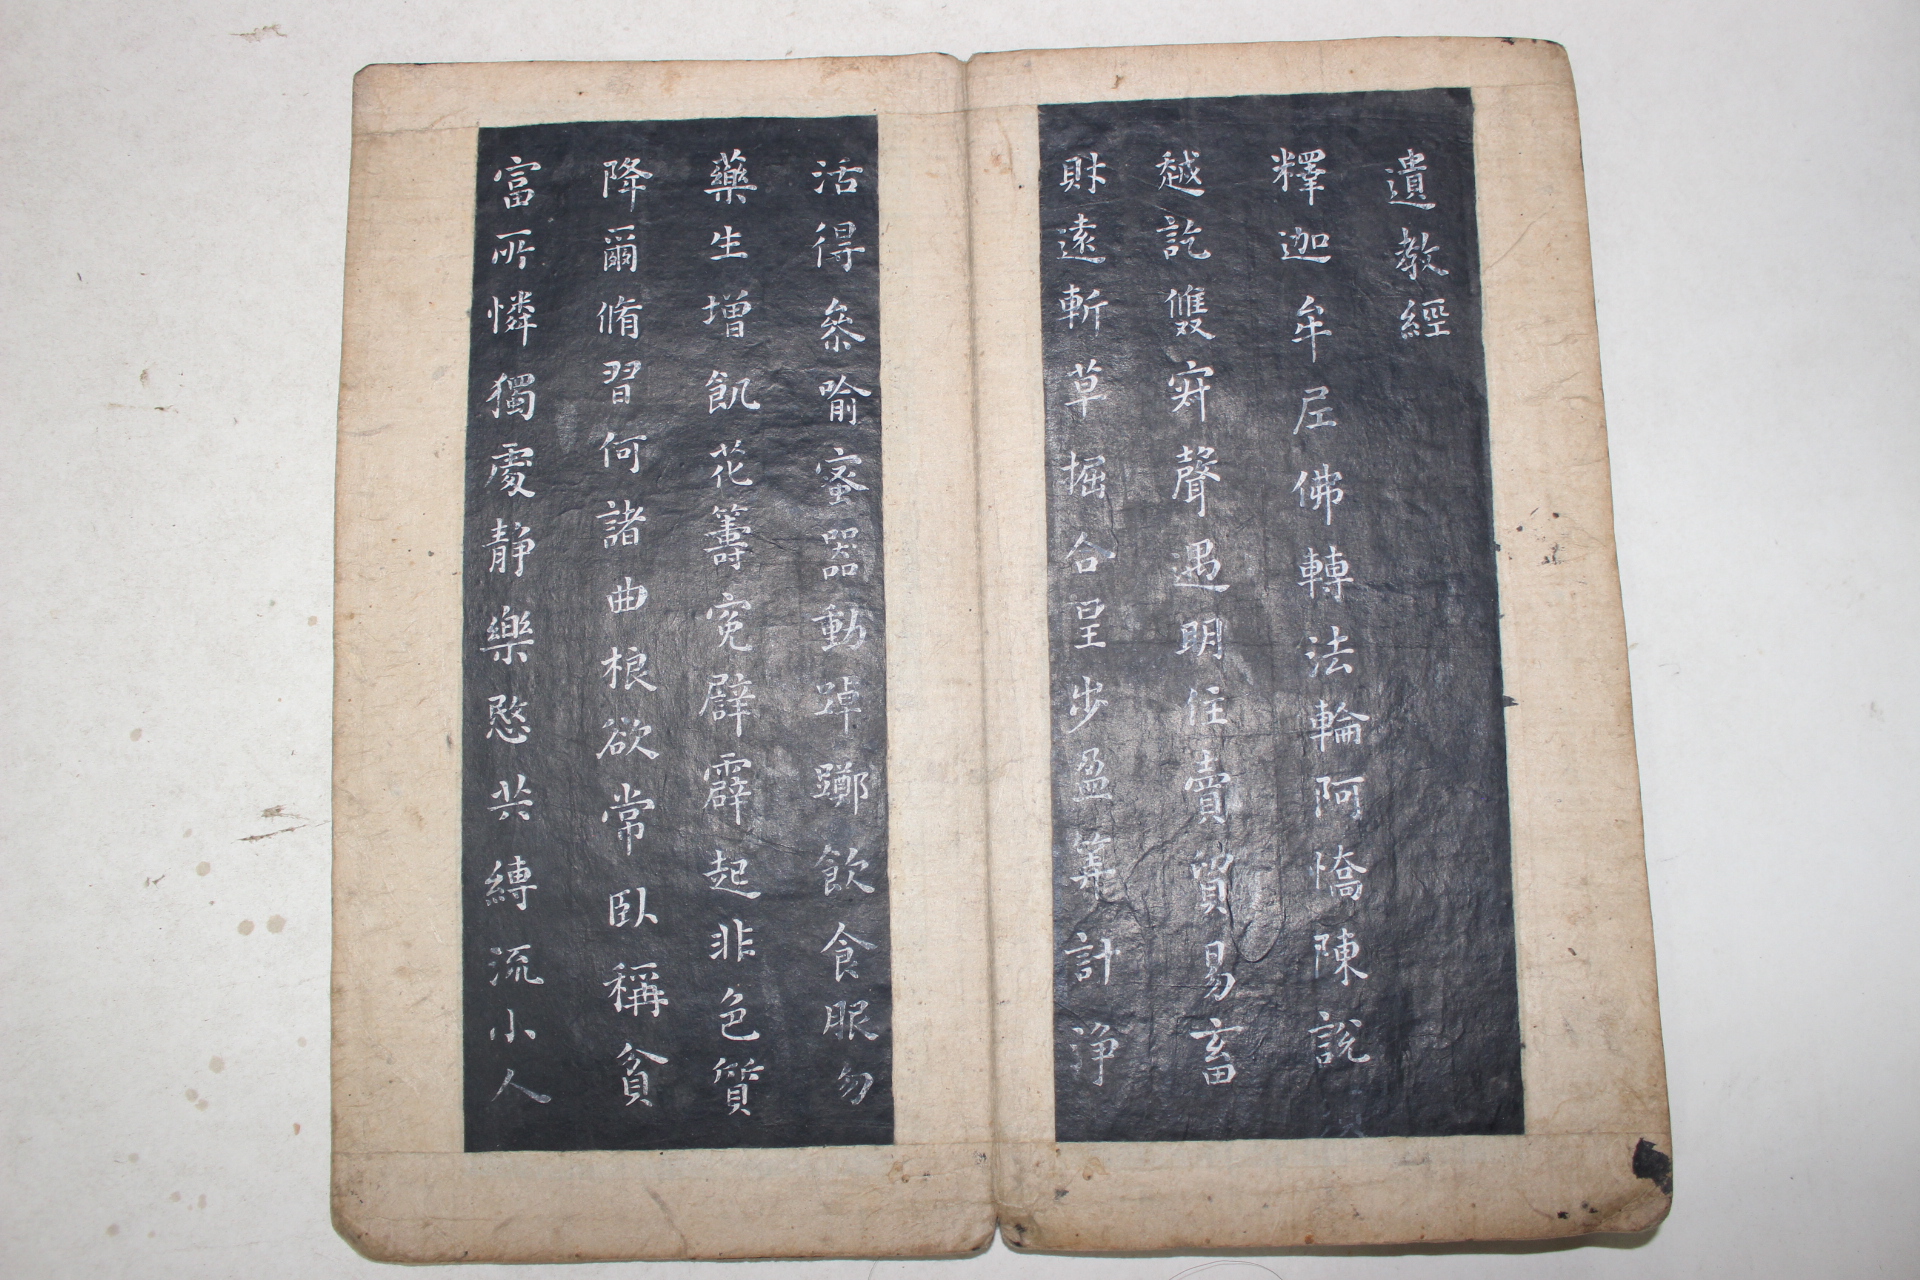 遺教經
釋迦牟尼佛轉法輪阿憍陳說
越訖雙寂聲遇明住賣貿易畜
財遠斬草掘合呈步盈筭計淨
活得叅喻蜜器動踔躑飲食眠勿
藥生增飢花籌寃劈霹起非色質
降爾脩習何諸曲根欲常臥稱貧
富所憐獨處靜樂愍共縛流小人